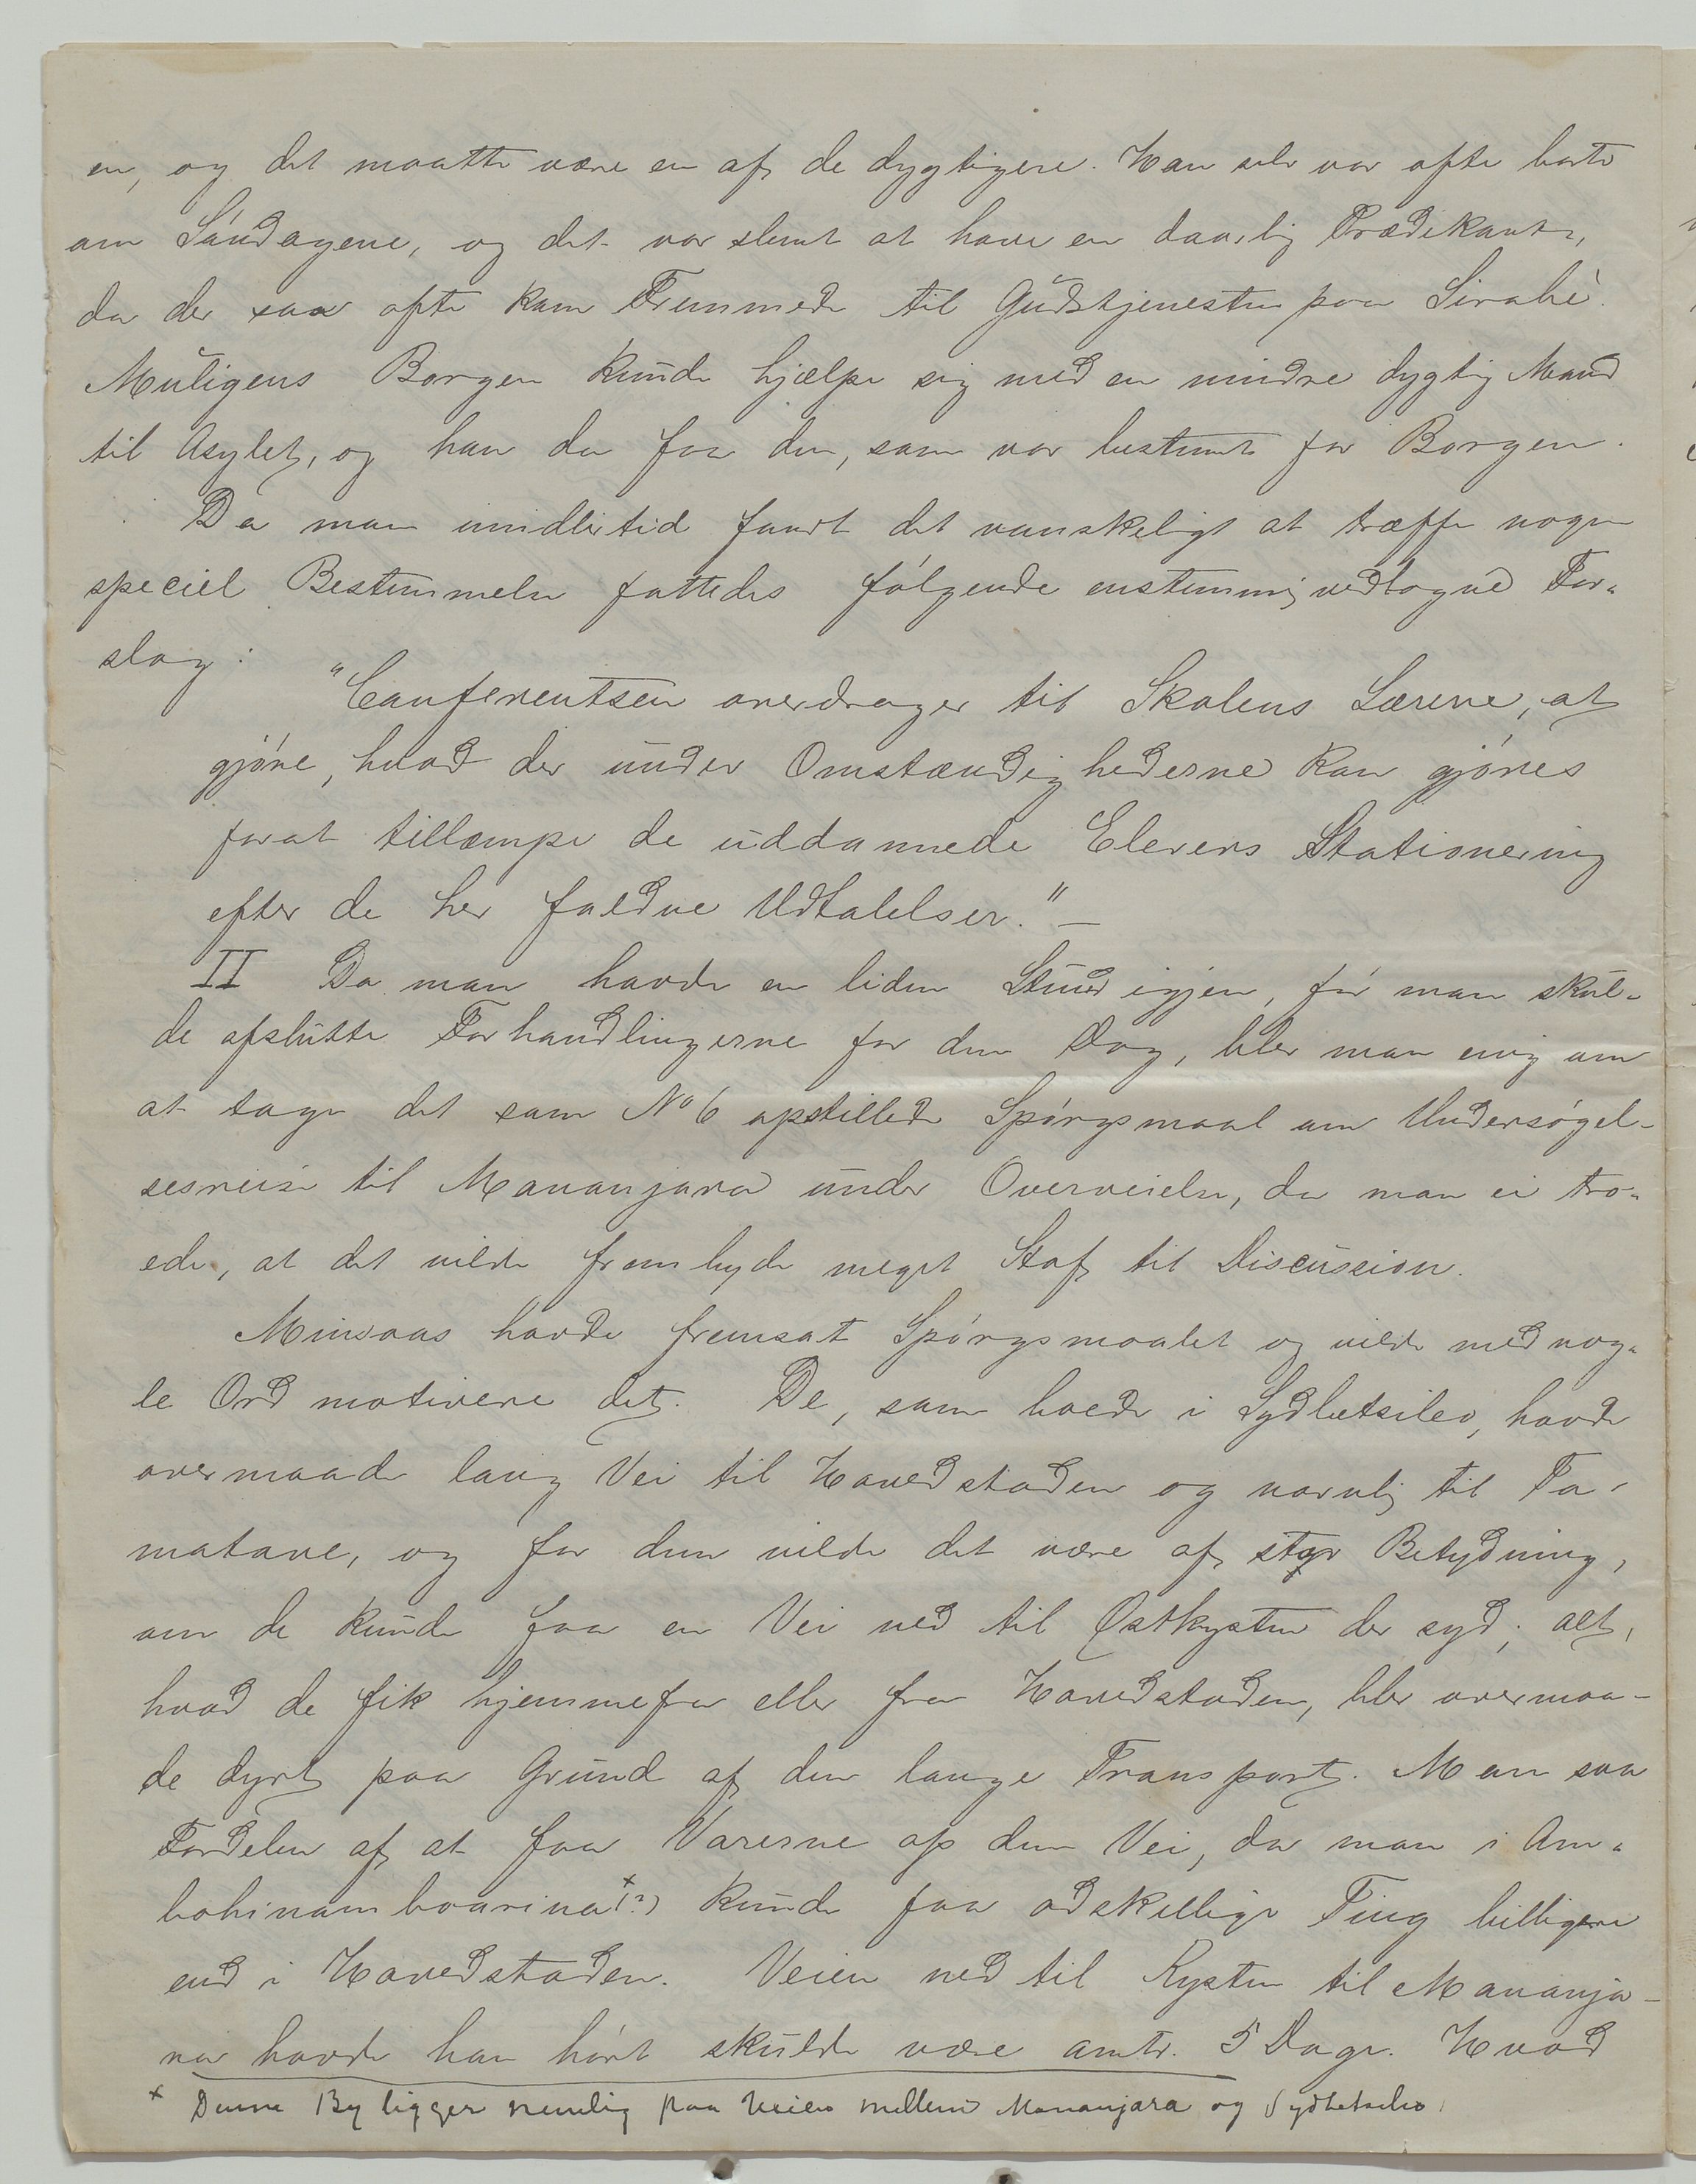 en, og det maatte være en af de dygtigere. Han selv var ofte borte
om Søndagene, og det var slemt at have en daarlig Prædikant,
da der saa ofte kom Fremmede til Gudstjenesten paa Sirabé.
Muligens Borgen kunde hjælpe sig med en mindre dygtig Mand
til Asylet, og han da faa den, som var bestemt for Borgen.
Da man imidlertid fandt det vanskeligt at træffe nogen
speciel Bestemmelse fattedes følgende enstemmig vedtagne For-
slag:
"Conferentsen overdrager til Skolens Lærere, at
gjøre, hvad der under Omstændighederne kan gjøres
forat tillæmpe de uddannede Elevers Stationering
efter de her faldne Udtalelser." —
II Da man havde en liden Stund igjen, før man skul-
de afslutte Forhandlingerne for den Dag, blev man enig om
at tage det som No 6 opstillede Spørgsmaal om Undersøgel-
sesreise til Mananjara under Overveielse, da man ei tro-
ede, at det vilde frembyde meget Stof til Discussion.
Minsaas havde fremsat Spørgsmaalet og vilde med nog-
le Ord motivere det. De, som boede i Sydbetsileo, havde
overmaade lang Vei til Hovedstaden og navnlig til Ta-
matave, og for dem vilde det være af stor Betydning,
om de kunde faa en Vei ned til Østkysten der syd; alt,
hvad de fik hjemmefra eller fra Hovedstaden, blev overmaa-
de dyrt paa Grund af den lange Transport. Man saa
Fordelen af at faa Varerne op den Vei, da man i Am-
bohinamboarina x(?) kunde faa adskellige Ting billigere
end i Hovedstaden. Veien ned til Kysten til Mananja-
ra havde han hørt skulde være omtr. 5 Dage. Hvad
x Denne By ligger nemlig paa Veien mellem Mananjara og Sydbetsileo.